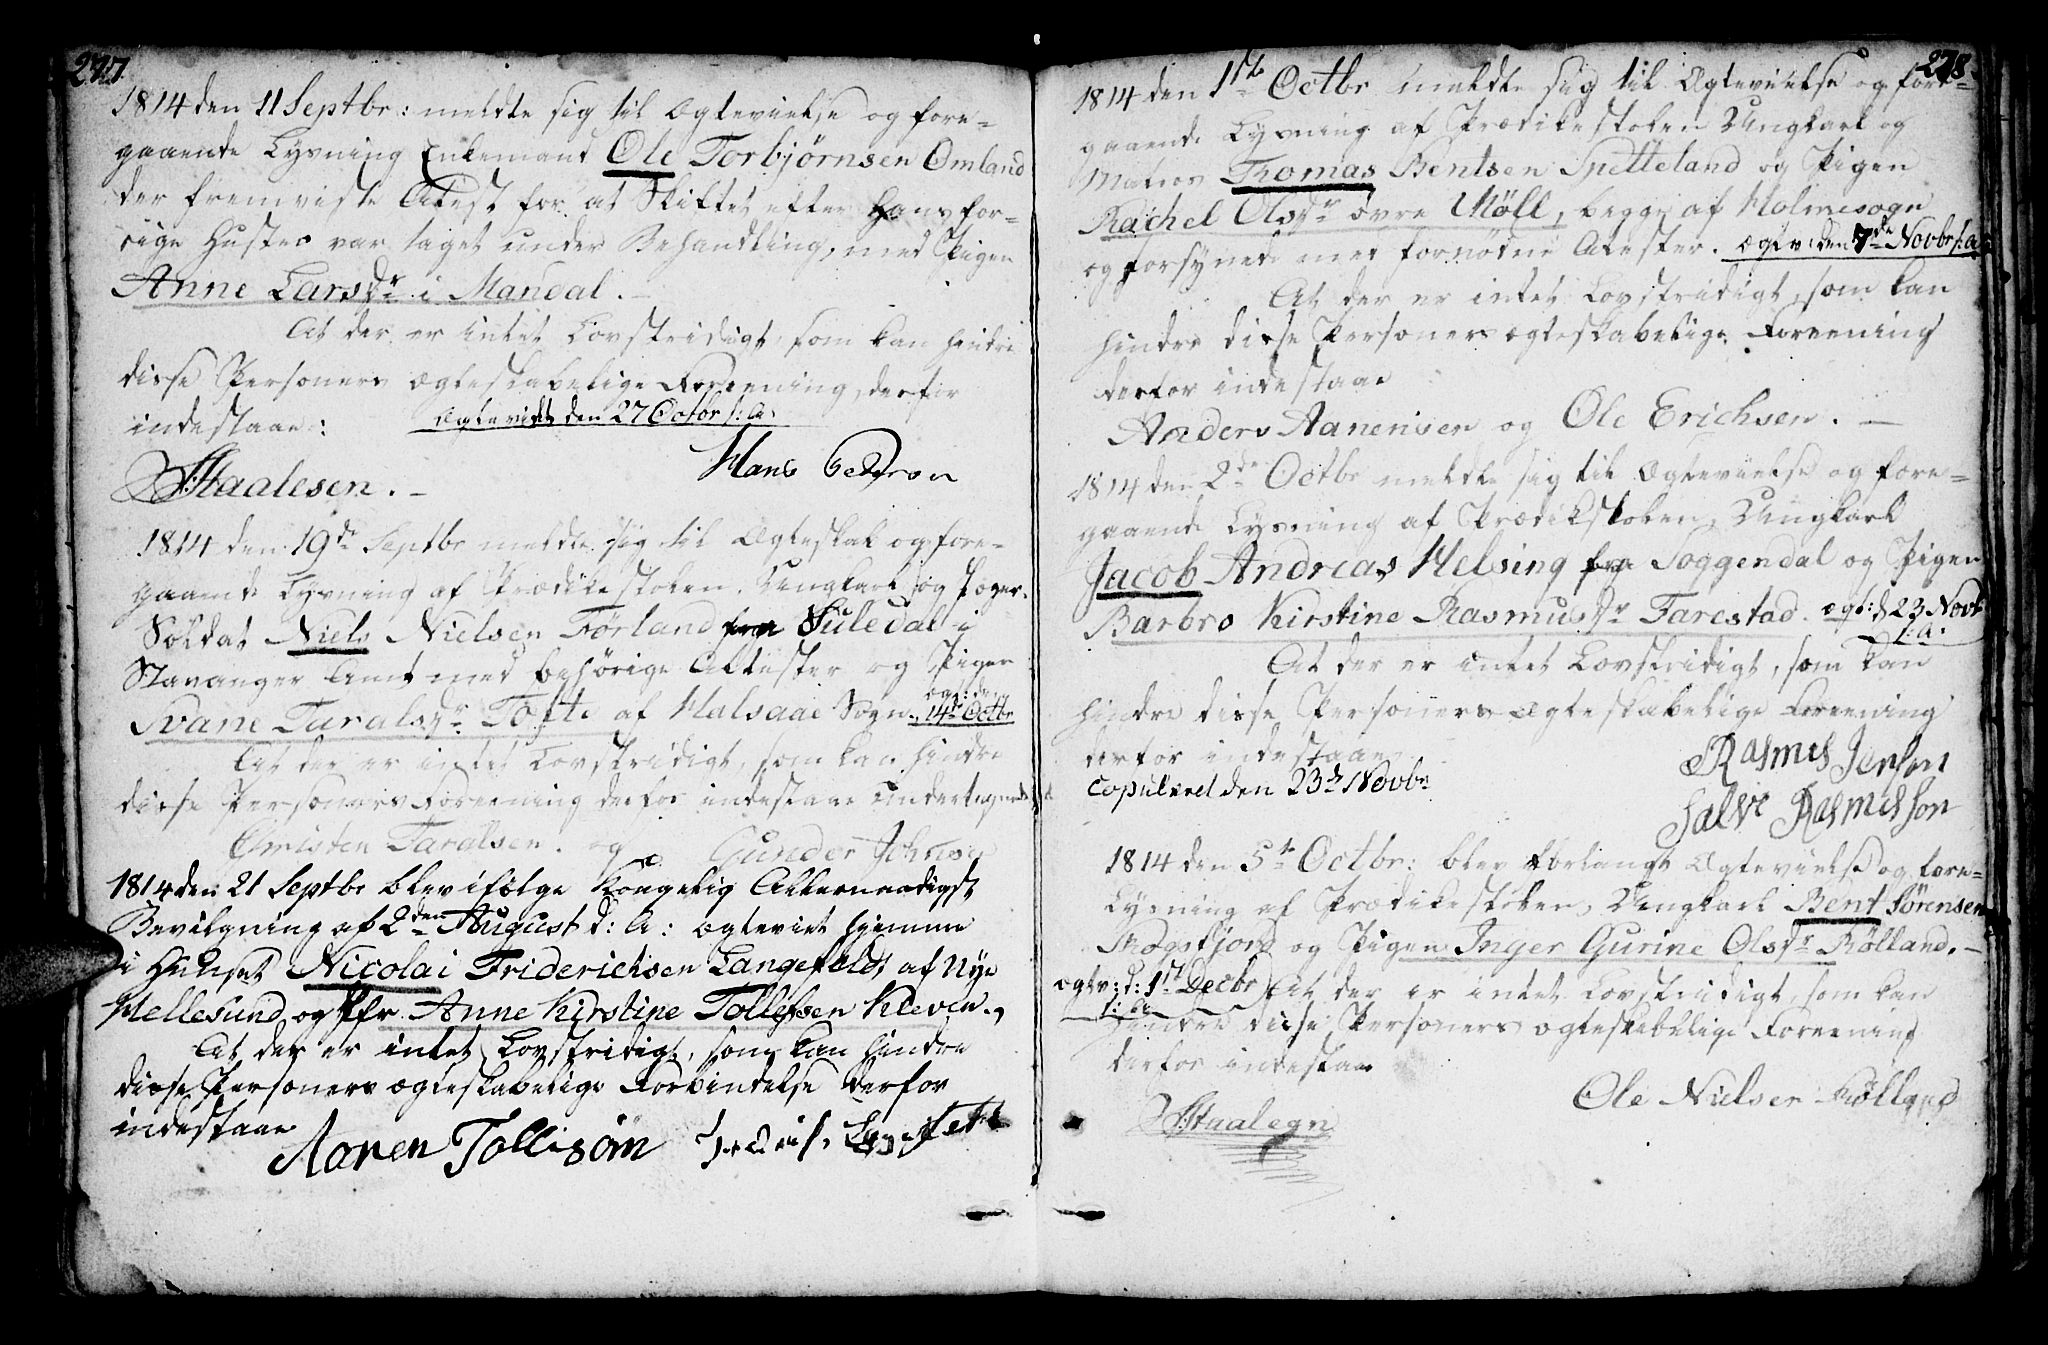 277
1814 den 11 Septbr: meldte sig til Ægtevielse og fore-
gaaende Lysning Enkemand Ole Torbjørnsen Omland
der fremviste Atest for at Skiftet efter Hans for-
rige Hustro var taget under Behandling, med Pigen
Anne Larsdr i Mandal.
At der er intet Lovstridigt, som kan hindre
disse Personers ægteskabelige Foreening, derfor
indestaae:
Ægteviet den 27 Octbr s: A.
Hans
Staalesen.
1814 den 19de Septbr meldte sig til Ægteskab og fore-
gaaende Lysning af Prædikestolen Ungkarl og Jæger-
Soldat Niels Nielsen Førland fra Suledal i
Stavanger Amt med behørige Attester og Pigen
Svane Taralsdr Tofte af Halsaae Sogn. ægt: d: 14de Octbr
At der er intet Lovstridigt, som kan hindre
disse Personers Foreening derfor indestaae undertegnede
Christen Taralsen. og Gunder Johnsen
1814 den 21 Septbr blev ifølge Kongelig Allernaadigst
Bevilgning af 2den August d: A: ægteviet hjemme
i Huuset Nicolai Friderichsen Langefeldt af Nye
Hellesund og Jfr. Anne Kirstine Tollefsen Kleven.
At der er intet Lovstridigt, som kan hindre
disse Personers ægteskabelige Forbindelse derfor
indestaae
Aaren Tollisøn
278
1814 den 1ste Octbr meldte sig til Ægtevielse og fore-
gaaende Lysning af Prædikestolen Ungkarl og
Matros Thomas Bentsen Spetteland og Pigen
Rachel Olsdr øvre Møll, begge af Holmesogn
og forsynede med fornødne Atester. ægtv: den 7de Novbr s: A:
At der er intet Lovstridigt, som kan
hindre disse Personers ægteskabelige Foreening
derfor indestaae
Anders Aanensen og Ole Erichsen.
1814 den 2de Octbr meldte sig til Ægtevielse og fore-
gaaende Lysning af Prædikstolen, Ungkarl
Jacob Andreas Helsing fra Soggendal og Pigen
Barbro Kirstine Rasmusdr Farestad. ægt: d 23 Novbr
s: A.
At der er intet Lovstridigt, som kan
hindre disse Personers ægteskabelige Foreening
derfor indestaae
Rasmus Jensen
copuleret den 23de Novbr
Salve Rasmusson
1814 den 5te Octbr: blev forlangt Ægtevielse og fore-
Lysning af Prædikestolen, Ungkarl Bent Sørensen
Skogsfjord og Pigen Inger Gurine Olsdr Rølland.
ægtv: d: 1ste Decbr s: A. At der er intet Lovstridigt, som kan
hindre disse Personers ægteskabelige Foreening
derfor indestaae
Ole Nielsen Rølland
Staalesen